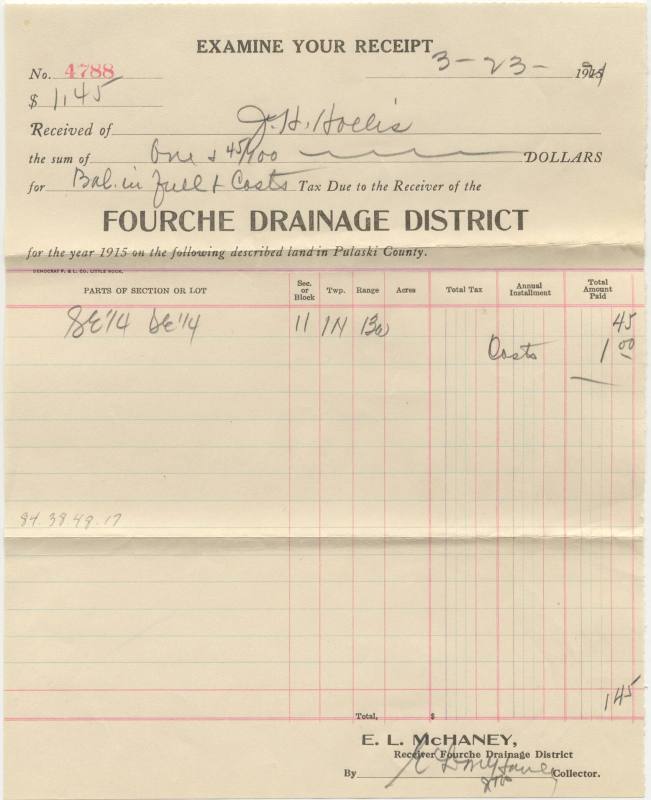 EXAMINE YOUR RECEIPT
No. 4788 3-23- 191
$ 1.45
Received of J. H. Hollis
the sum of One & 45/100 DOLLARS
for Bal. in full & Costs Tax Due to the Receiver of the
FOURCHE DRAINAGE DISTRICT
for the year 1915 on the following described land in Pulaski County.
DEMOCRAT P. & L. CO. LITTLE ROCK.
PARTS OF SECTION OR LOT Sec. or Block Twp. Range Acres Total Tax Annual Installment Total Amount Paid
SE 1/4 SE 1/4 11 1N 13W 45
Costs 1 00
84.38.48.17
1 45
Total, $
E. L. McHANEY,
Receiver Fourche Drainage District
By E L McHaney Collector.